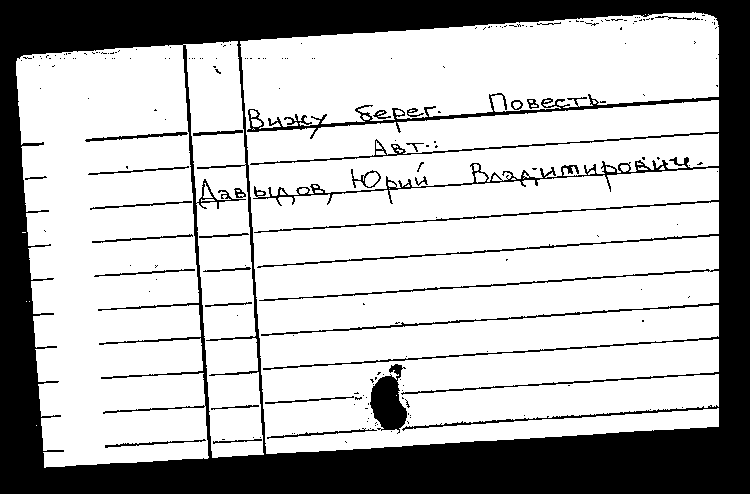 Вижу берег. Повесть.
Авт.:
Давыдов, Юрий Владимирович.